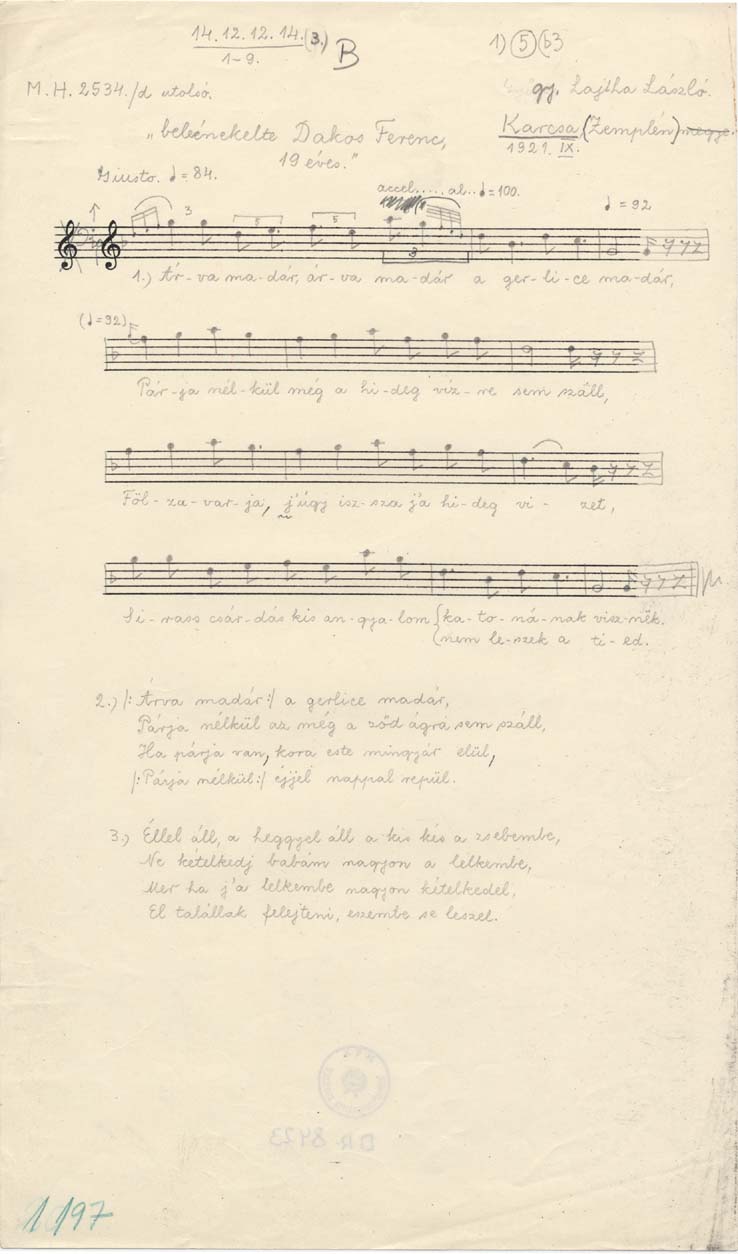 14. 12. 12. 14. (3.) B 1) 5 b3
1-9.
M. H. 2534./d utolsó. gy. Lajtha László.
„beleénekelte Dakos Ferenc, Karcsa, (Zemplén) megye.
19 éves." 1921. IX.
Giusto. ♩= 84. accel..... al.. ♩= 100. ♩ = 92
3 5 5 3
1.) Ár-va ma-dár, ár-va ma-dár a ger-li-ce ma-dár,
(♩= 92)
Pár-ja nél-kül még a hi-deg víz-re sem száll,
Föl-za-var-ja, j'úgy isz-sza j'a hi-deg vi-zet,
Si-rass csár-dás kis an-gya-lom { ka-to-ná-nak visz-nek.
{ nem le-szek a ti-ed.
2.) /: Árva madár :/ a gerlice madár,
Párja nélkül az még a ződ ágra sem száll,
Ha párja van, kora este mingyár elül,
/: Párja nélkül :/ éjjel nappal repül.
3.) Éllel áll, a heggyel áll a kis kés a zsebembe,
Ne kételkedj babám nagyon a lelkembe,
Mer ha j'a lelkembe nagyon kételkedel,
El talállak felejteni, eszembe se leszel.
DR 8423
1197